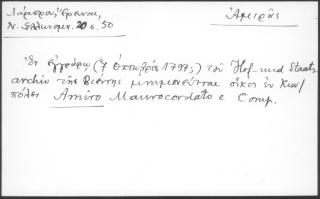 Λάμπρος, Έρευναι,
Ν. Ελληνομν. 20 σ. 50
Ἀμειρᾶς
Ἐν ἐγγράφῳ (7 Ὀκτωβρίου 1797) τοῦ Hof- und Staats
archiv τῆς Βιέννης μνημονεύεται οἶκος ἐν Κων/
πόλει Amiro Maurocordato e Comp.